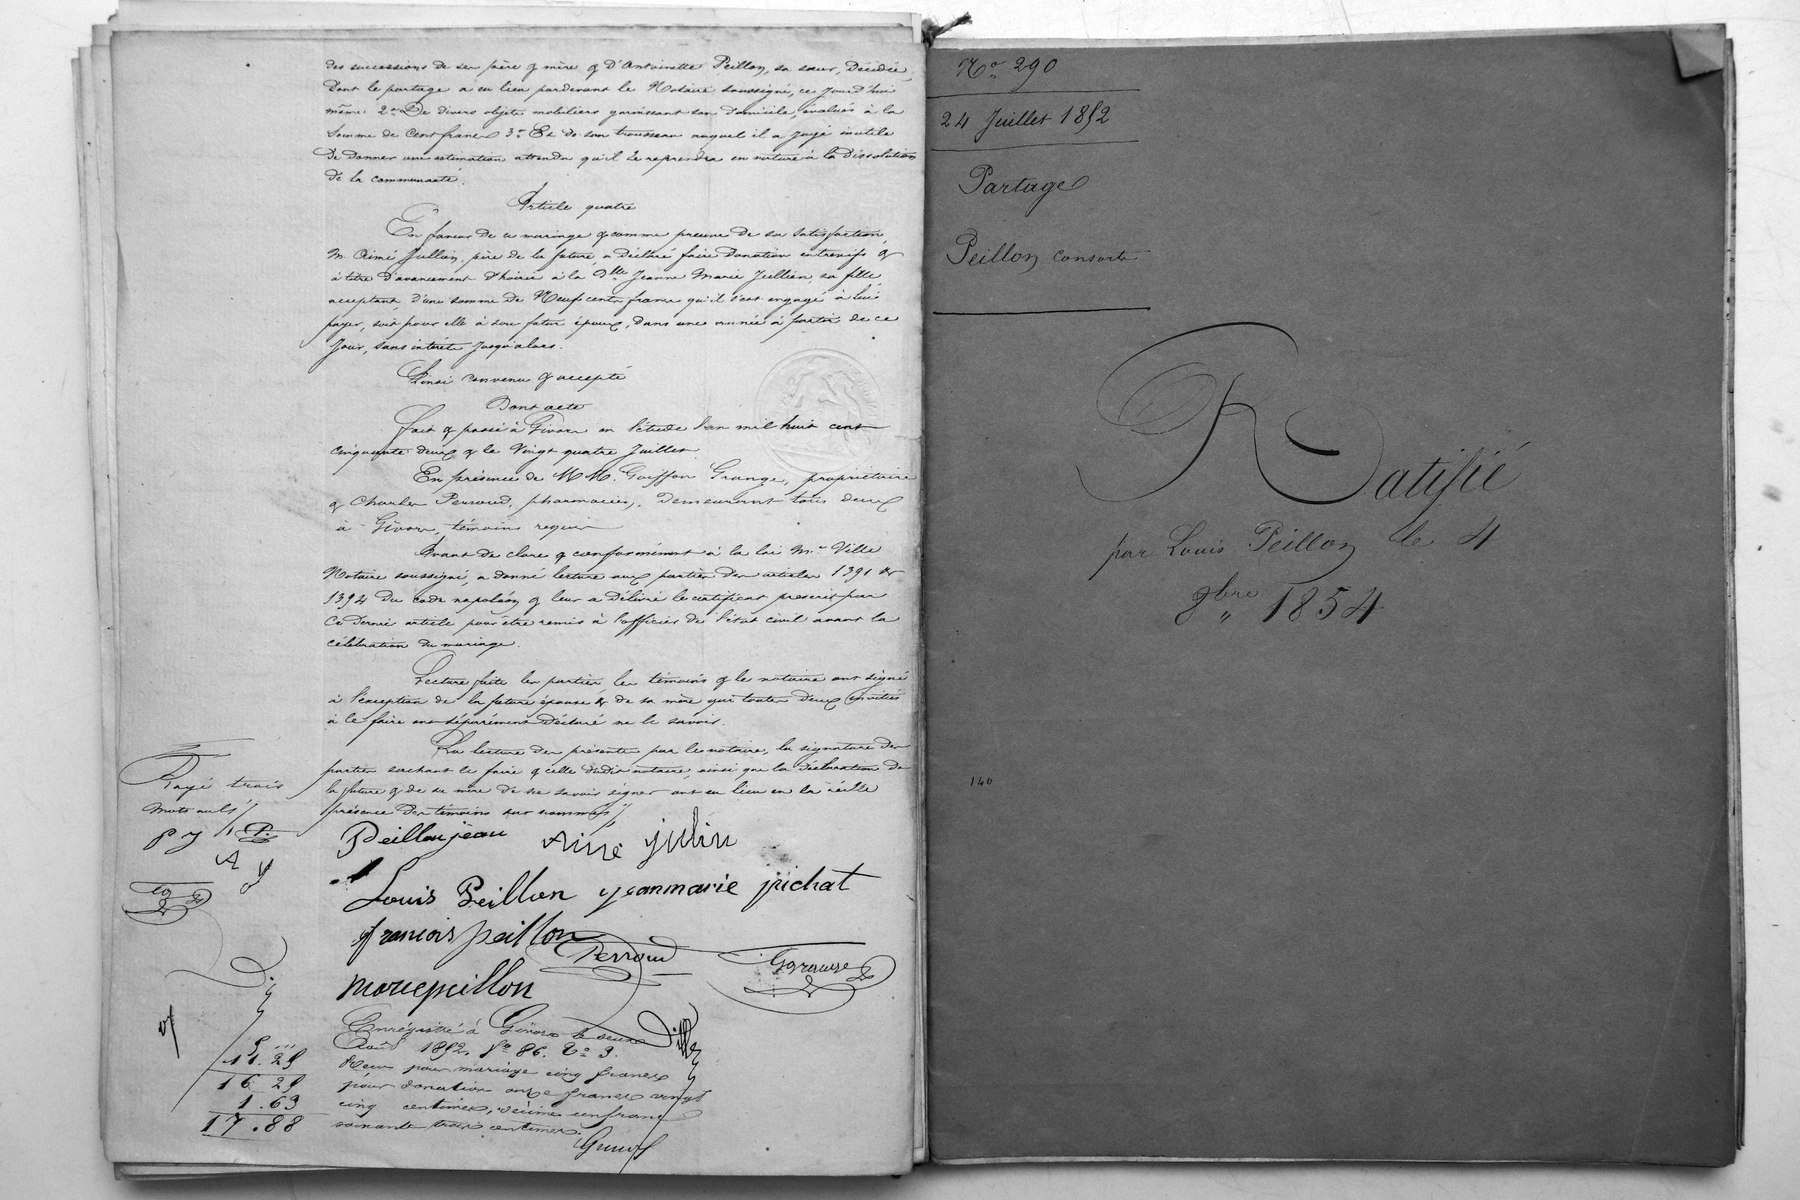 des successions de ses père & mère & D'Antoinette Peillon, sa sœur, Décédée,
Dont le partage a eu lieu pardevant le Notaire soussigné, ce jourd'hui
même. 2° De divers objets mobiliers garnissant son Domicile, évalués à la
Somme de Cent francs 3° Et de son trousseau auquel il a jugé inutile
De Donner une estimation attendu qu'il le reprendra en nature à la Dissolution
de la communauté.
Article quatre
En faveur de ce mariage & comme preuve de sa satisfaction,
M. Aimé Jullien, père de la future, a déclaré faire Donation entrevifs &
à titre D'avancement D'hoirie à la Dlle Jeanne Marie Jullien, sa fille,
acceptant, d'une somme de Neuf cents francs qu'il s'est engagé à lui
payer, soit pour elle à son futur époux, Dans une année à partir de ce
jour, sans intérêts jusqu'alors.
Ainsi convenu & accepté
Dont acte
Fait & passé à Givors en l'étude l'an mil huit cent
cinquante deux & le Vingt quatre Juillet.
En présence de MM. Goiffon Grange, propriétaire
& Charles Perroud, pharmacien, Demeurant tous deux
à Givors, témoins requis
Avant de clore & conformément à la loi Me Ville
Notaire soussigné, a donné lecture aux parties Des articles 1391 &
1394 Du code napoléon & leur a Délivré le certificat prescrit par
Ce Dernier article pour être remis à l'officier de l'état civil avant la
célébration du mariage.
Lecture faite les parties les témoins & le notaire ont signé
à l'exception de la future épouse & de sa mère qui toutes deux invitées
à le faire ont séparément Déclaré ne le savoir.
La lecture des présentes par le notaire, la signature des
parties sachant le faire & celle dudit notaire, ainsi que la déclaration de
la future & de sa mère de ne savoir signer ont eu lieu en la réelle
présence Des témoins sus nommés
Rayé trois
mots nuls
P J P
A J
Peillon jean Aimé julin
Louis Peillon jeanmarie pichat
francois peillon
Perroud
Grange
marie peillon
Ville
Enregistré à Givors le deux
Août 1852, fo 86. Vo 3.
Reçu pour mariage cinq francs
pour donation onze francs vingt
cinq centimes, décime un franc
soixante trois centimes.
5. "
11. 25
16. 25
1. 63
17. 88
No 290
24 Juillet 1852
Partage
Peillon consorts
Ratifié
par Louis Peillon le 4
9bre 1854
140